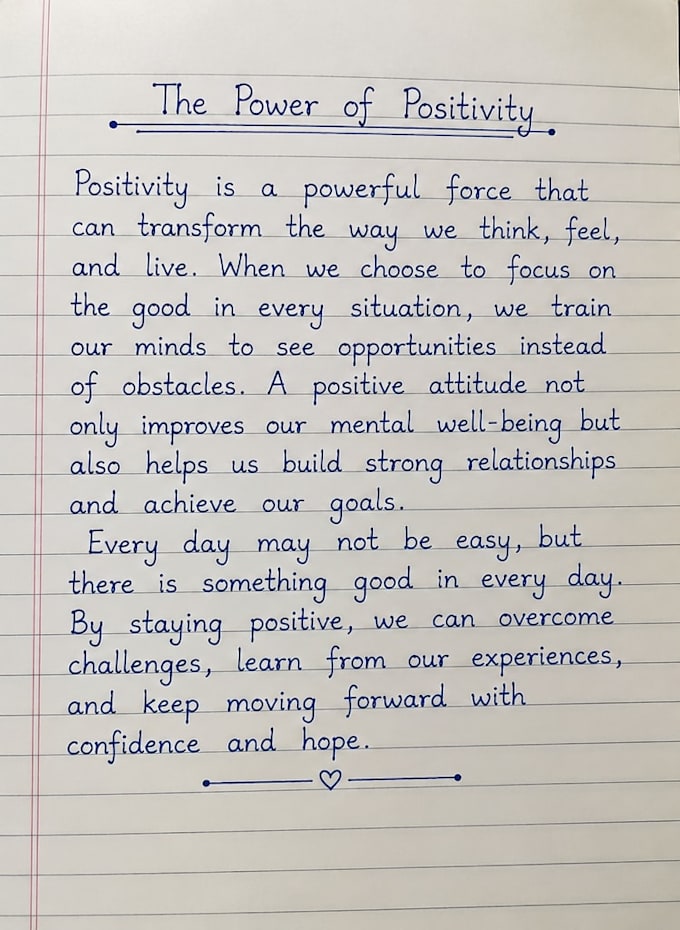 The Power of Positivity
Positivity is a powerful force that
can transform the way we think, feel,
and live. When we choose to focus on
the good in every situation, we train
our minds to see opportunities instead
of obstacles. A positive attitude not
only improves our mental well-being but
also helps us build strong relationships
and achieve our goals.
Every day may not be easy, but
there is something good in every day.
By staying positive, we can overcome
challenges, learn from our experiences,
and keep moving forward with
confidence and hope.